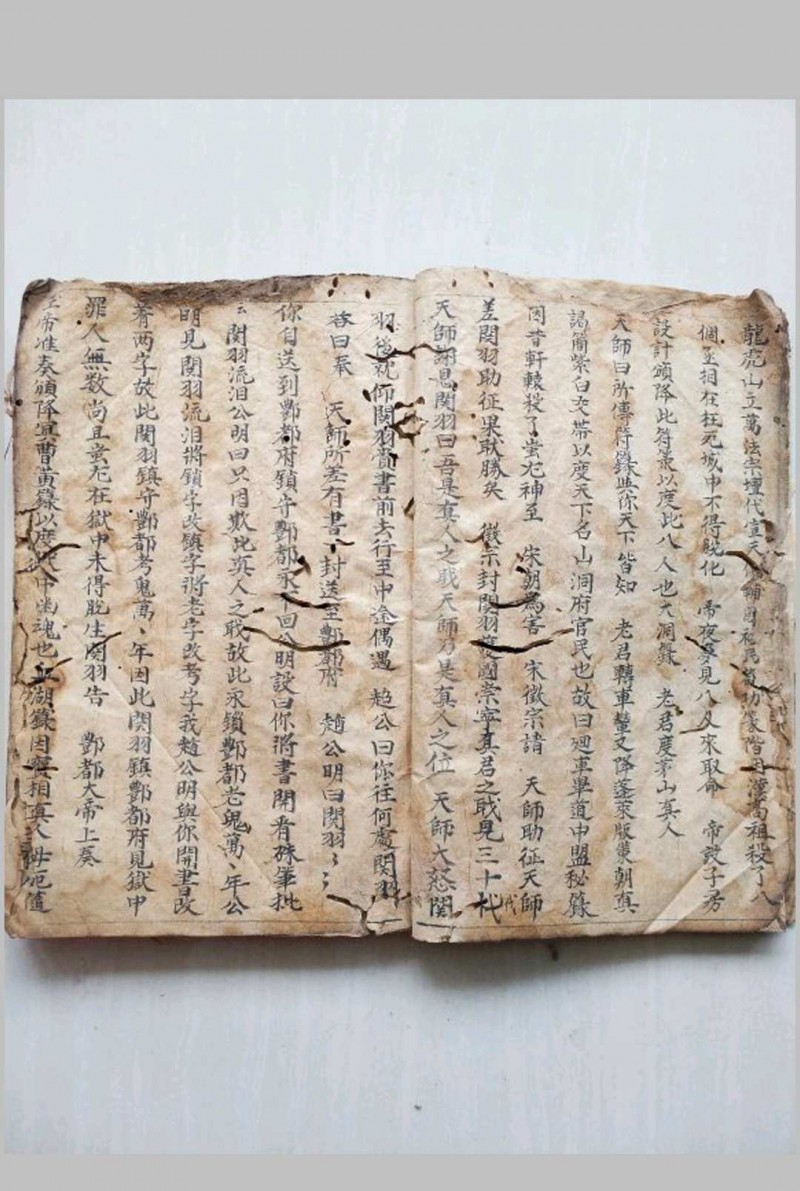 龍虎山立萬法宗壇代宣天 輔國祐民 功籙階因漢高祖殺了八
個丞相在枉死城中不得脫化 帝夜夢見八人來取命 帝設子房
設計頒降此符籙以度此八人也大洞籙 老君度茅山真人
天師曰所傳符籙與你天下皆知 老君轉車 又降蓬萊版 朝真
謁簡紫白交帶以度天下名山洞府官民也故曰廻車畢道中盟秘籙
因昔軒轅殺了蚩尤神至 宋朝為害 宋徽宗請 天師助征天師
差関羽助征果敢勝矣 徽宗封関羽 國崇寧真君之戝見三十代
天師謝恩関羽曰吾是真人之戝天師乃是真人之位 天師大怒関
羽後就仰関羽賫書前去行至中途偶遇 趙公曰你往何處関羽
荅曰奉 天師所差有書一封送至酆都府 趙公明曰関羽〻〻
你自送到酆都府鎖守酆都永不回公明設曰你將書開看硃筆批
云関羽流泪公明曰只因欺此真人之戝故此永鎖酆都老鬼萬〻年公
明見関羽流泪將鎖字改鎮字將老字改考字我趙公明與你開書改
著两字故此関羽鎮守酆都考鬼萬〻年因此関羽鎮酆都府見獄中
罪人無数尚且蚩尤在獄中未得脫生関羽告 酆都大帝上奏
玉帝准奏頒降冥曹黃籙以度獄中幽魂也血湖籙因 相真人母厄值